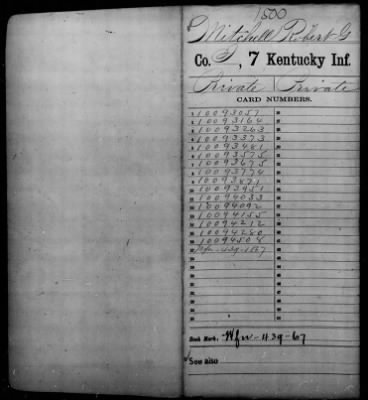 1500
Mitchell, Robert G
Co. , 7 Kentucky Inf.
Private Private
CARD NUMBERS.
10093057
10093164
10093263
10093373
10093481
10093575
10093675
10093774
10093871
10093951
10094033
10094092
10094155
10094212
10094280
10094508
Book Mark: 439-67
See also